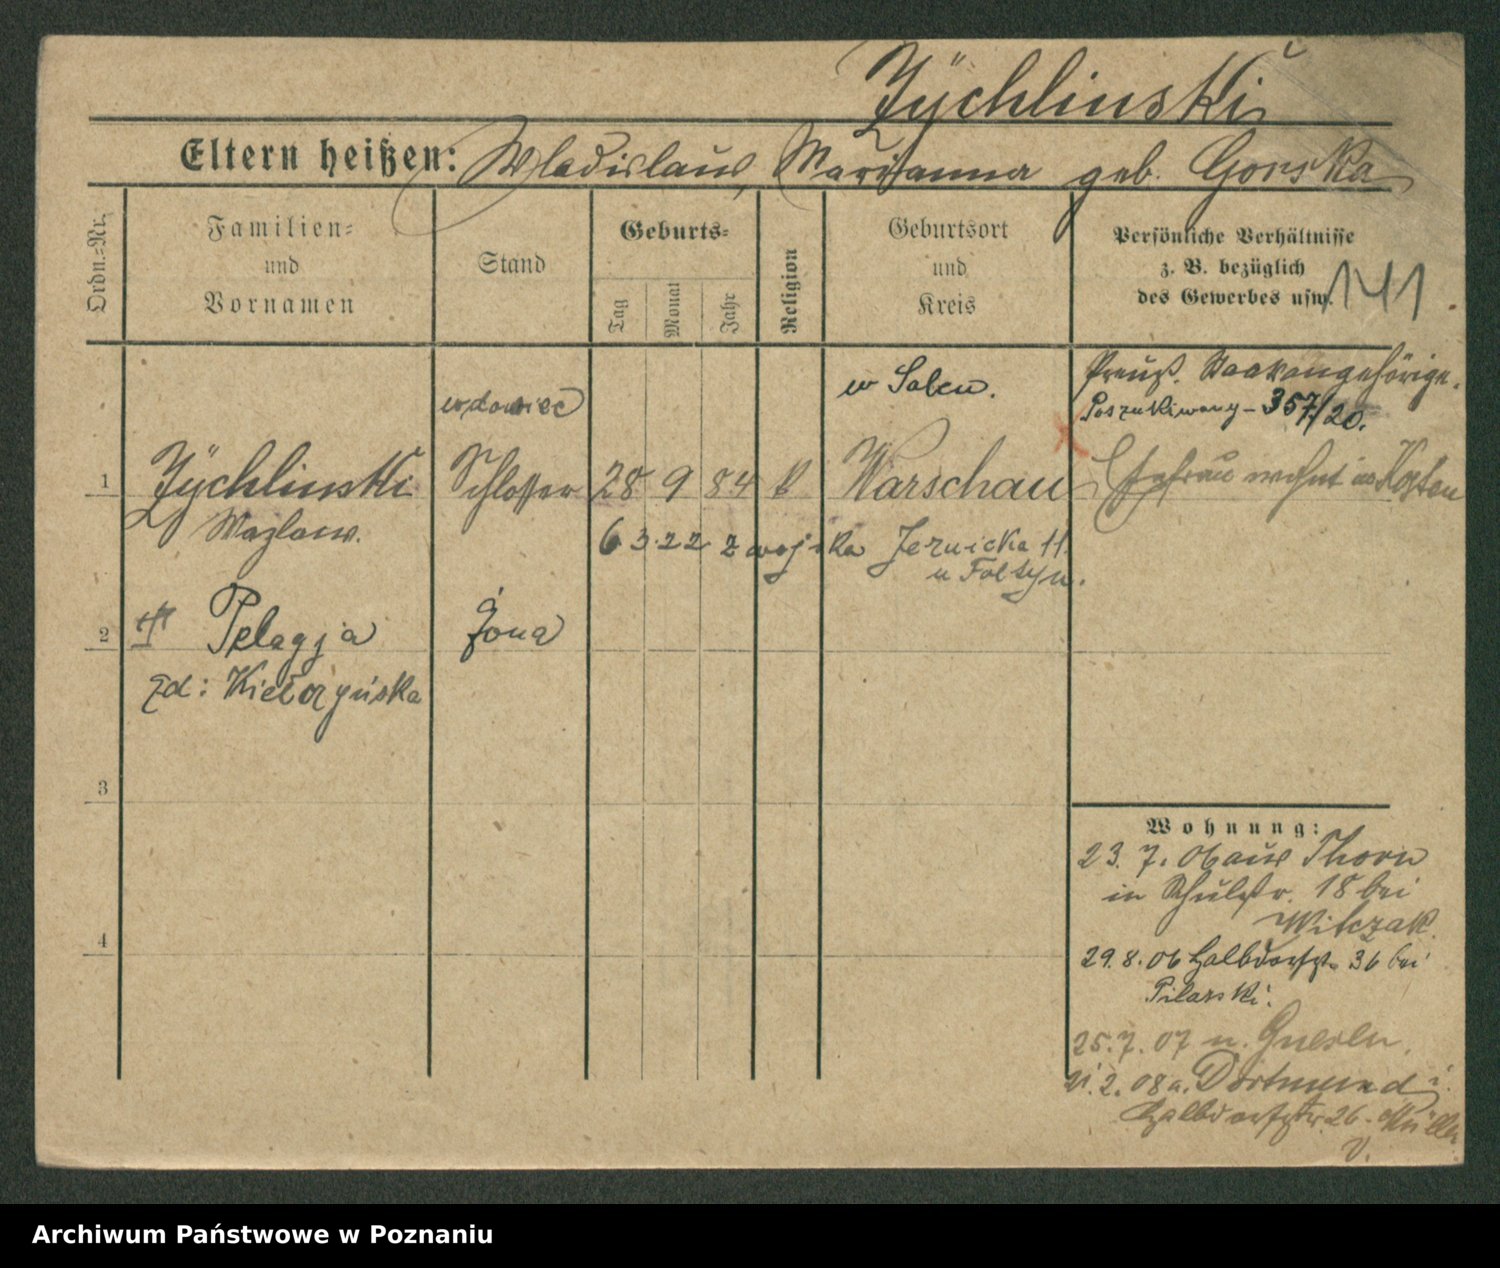 Żÿchlinski
Eltern heißen: Wladislaus, Marianna geb. Gorska
Ordn.=Nr.
Familien=
und
Vornamen
Stand
Geburts=
Tag
Monat
Jahr
Religion
Geburtsort
und
Kreis
Persönliche Verhältnisse
z. B. bezüglich
des Gewerbes usw.
141
Preuß. Staatsangehörige.
wdowiec
Poszukiwany – 357/20.
1 Żÿchlinski Schlosser 28 9 84 k Warschau Ehefrau wohnt in Kosten
Wazlaw.
6 3.22 z wojska Jezuicka 11.
2 Pelagja Żona
zd:
3
4
Wohnung:
23. 7. 06 aus Thorn
in Schulstr. 18 bei
Witczak.
29. 8. 06 Halbdorfstr. 36 bei
Pilarski.
25. 7. 07 n. Gnesen.
2. 08 a. Dortmund i.
Halbdorfstr. 26. Müller
Archiwum Państwowe w Poznaniu